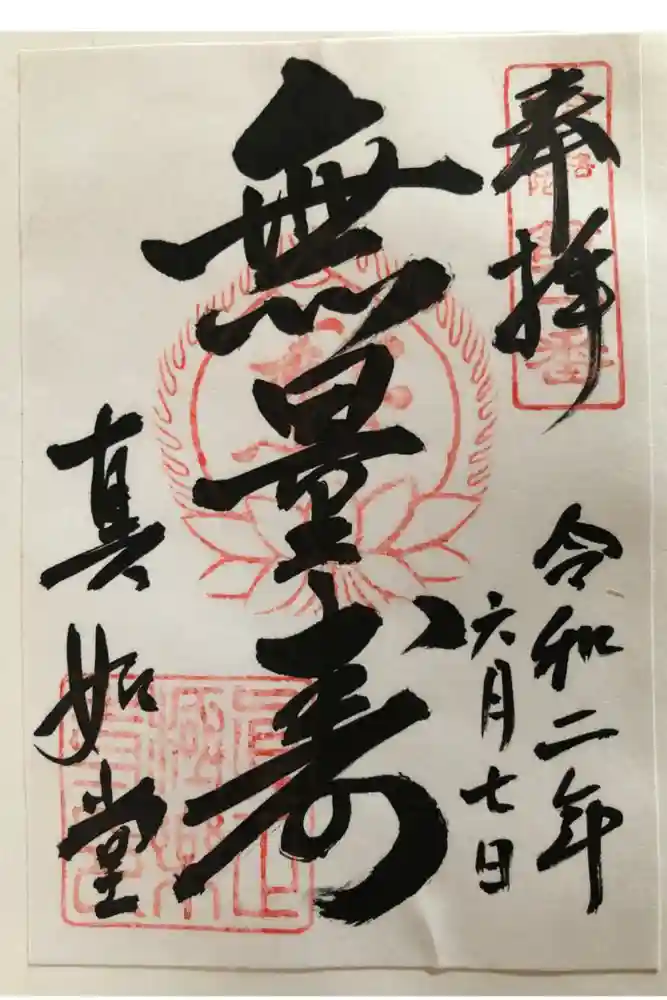 奉拝
令和二年
六月七日
無量寿
真如堂